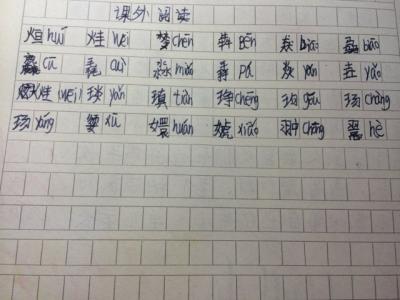 课外阅读
huǐ 烓 wei chēn 犇 Bēn 猋 biāo bāo
麤 cū 毳 cuì 淼 miǎo pá 焱 yàn 垚 yáo
烓 (wēi) 琰 yǎn 瑱 tiàn 琤 chēng gǒu 玚 chàng
玚 yáng xū 嬛 huán xiāo 翀 chōng 翯 hè